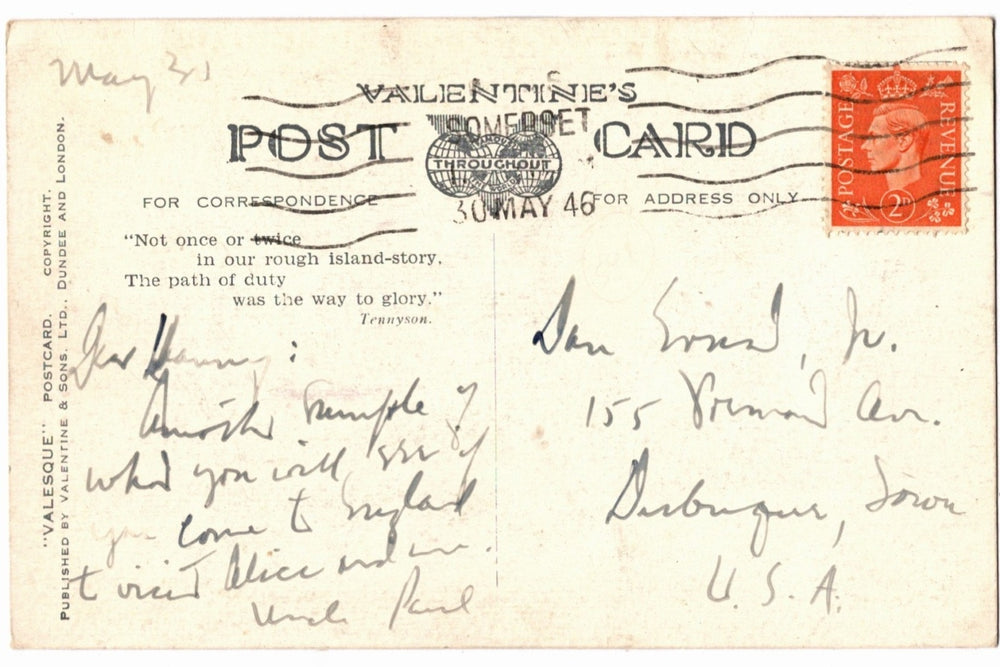 May
VALENTINE'S
POST CARD
THROUGHOUT
SOMERSET
30 MAY 46
POSTAGE REVENUE
2D
FOR CORRESPONDENCE
FOR ADDRESS ONLY
"Not once or twice
in our rough island-story,
The path of duty
was the way to glory."
Tennyson.
"VALESQUE" POSTCARD. COPYRIGHT.
PUBLISHED BY VALENTINE & SONS. LTD., DUNDEE AND LONDON.
Dear Danny:
Another sample of
what you will see if
you come to England
to visit Alice and me.
Uncle Paul
Dan Jr.
155 Ave.
Dubuque, Iowa
U. S. A.